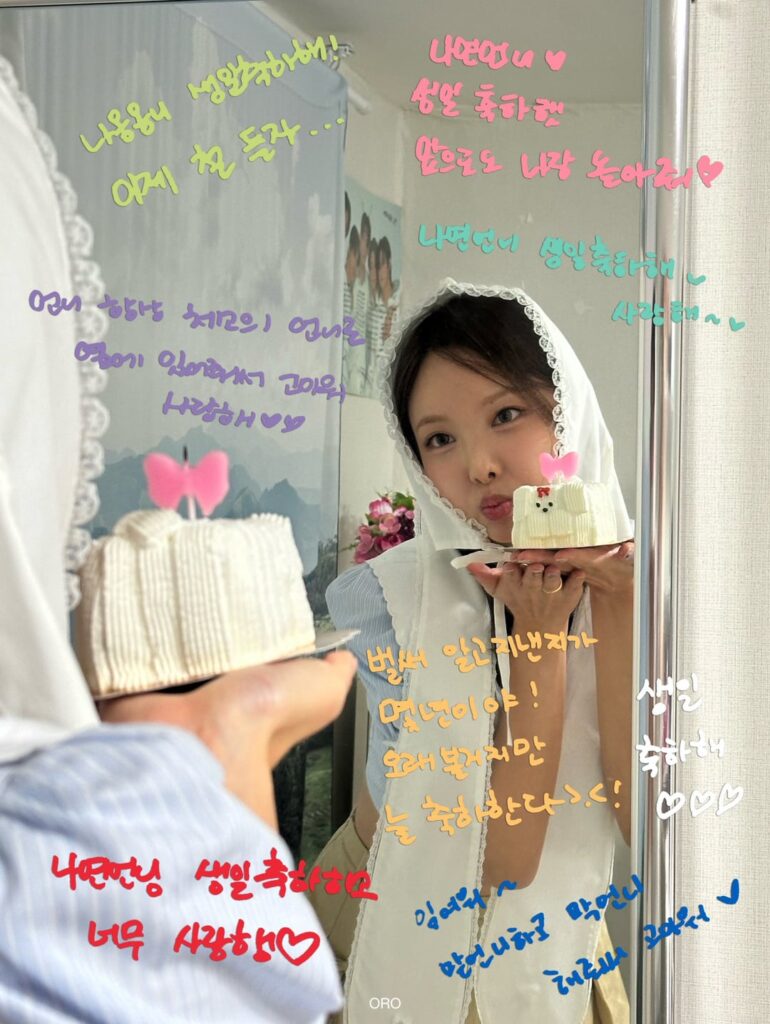 나용용니 생일축하해!
이제 철 들자...
나연언니♡
생일 축하햄
앞으로도 나랑 놀아줘♡
나연언니 생일축하해
사랑해~
언니 항상 최고의 언니로
옆에 있어줘서 고마워
사랑해♡♡
벌써 알고지낸지가
몇년이야!
오래볼거지만
늘 축하한다>.<!
생일
축하해
♡♡♡
나연언닝 생일축하하고
너무 사랑행♡
임여워~
맏언니하고 막언니
해줘서 고마워
ORO